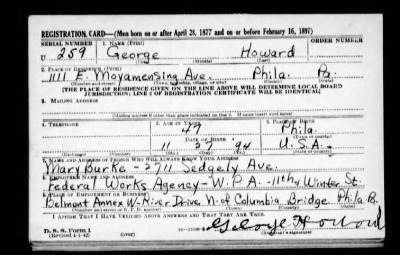 REGISTRATION CARD—(Men born on or after April 28, 1877 and on or before February 16, 1897)
SERIAL NUMBER 1. NAME (Print)
U 259 George Howard
(First) (Middle) (Last)
2. PLACE OF RESIDENCE (Print)
1111 E. Moyamensing Ave. Phila. Pa.
(Number and street) (Town, township, village, or city) (County) (State)
[THE PLACE OF RESIDENCE GIVEN ON THE LINE ABOVE WILL DETERMINE LOCAL BOARD
JURISDICTION; LINE 2 OF REGISTRATION CERTIFICATE WILL BE IDENTICAL]
3. MAILING ADDRESS
[Mailing address if other than place indicated on line 2. If same insert word same]
4. TELEPHONE 5. AGE IN YEARS
47 Phila.
DATE OF BIRTH
11 27 94 U.S.A.
7. NAME AND ADDRESS OF PERSON WHO WILL ALWAYS KNOW YOUR ADDRESS
Mary Burke - 2711 Sedgely Ave.
8. EMPLOYER'S NAME AND ADDRESS
Federal Works Agency - W.P.A. - 11th & Winter St.
9. PLACE OF EMPLOYMENT OR BUSINESS
Belmont Annex W-River Drive N. of Columbia Bridge Phila.
I AFFIRM THAT I HAVE VERIFIED ABOVE ANSWERS AND THAT THEY ARE TRUE.
D. S. S. Form 1
(Revised 4-1-42) George Howard